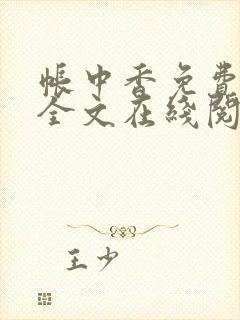 帐中香免费
全文在线阅
王少